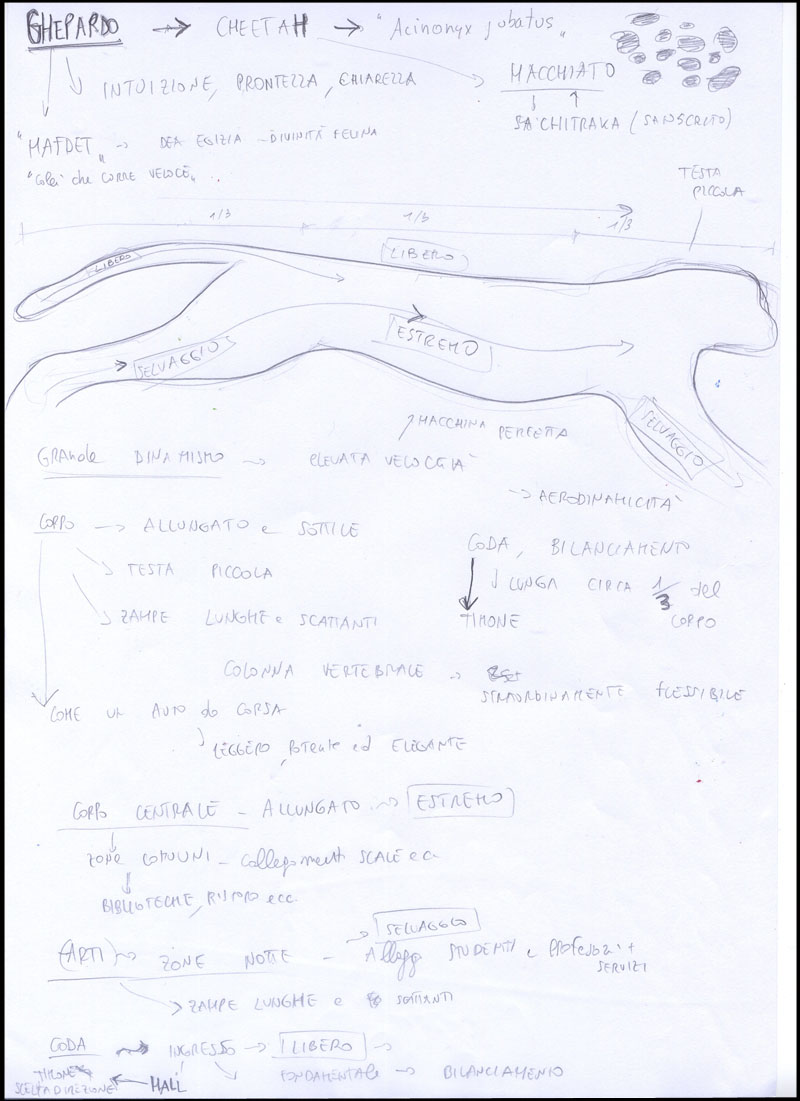 GHEPARDO → CHEETAH → "Acinonyx jubatus"
INTUIZIONE, PRONTEZZA, CHIAREZZA
MACCHIATO
SA'CHITRAKA (SANSCRITO)
"MAFDET" → DEA EGIZIA - DIVINITÀ FELINA
"colei che CORRE VELOCE"
TESTA
PICCOLA
1/3 1/3 1/3
LIBERO LIBERO
SELVAGGIO ESTREMO
SELVAGGIO
MACCHINA PERFETTA
GRANDE DINAMISMO → ELEVATA VELOCITÀ
→ AERODINAMICITÀ
CORPO → ALLUNGATO e SOTTILE
CODA, BILANCIAMENTO
TESTA PICCOLA
LUNGA CIRCA 1/3 del
CORPO
ZAMPE LUNGHE e SCATTANTI
TIMONE
COLONNA VERTEBRALE →
STRAORDINAMENTE FLESSIBILE
COME UN AUTO da CORSA
LEGGERO, POTENTE ed ELEGANTE
CORPO CENTRALE - ALLUNGATO → ESTREMO
ZONE COMUNI - collegamenti SCALE ecc
BIBLIOTECHE, RISTORO ecc.
SELVAGGIO
(ARTI) → ZONE NOTTE - Alloggi STUDENTI e Professori +
SERVIZI
→ ZAMPE LUNGHE e SCATTANTI
CODA → INGRESSO → LIBERO →
FONDAMENTALE → BILANCIAMENTO
TIMONE
SCELTA DIREZIONE ← HALL